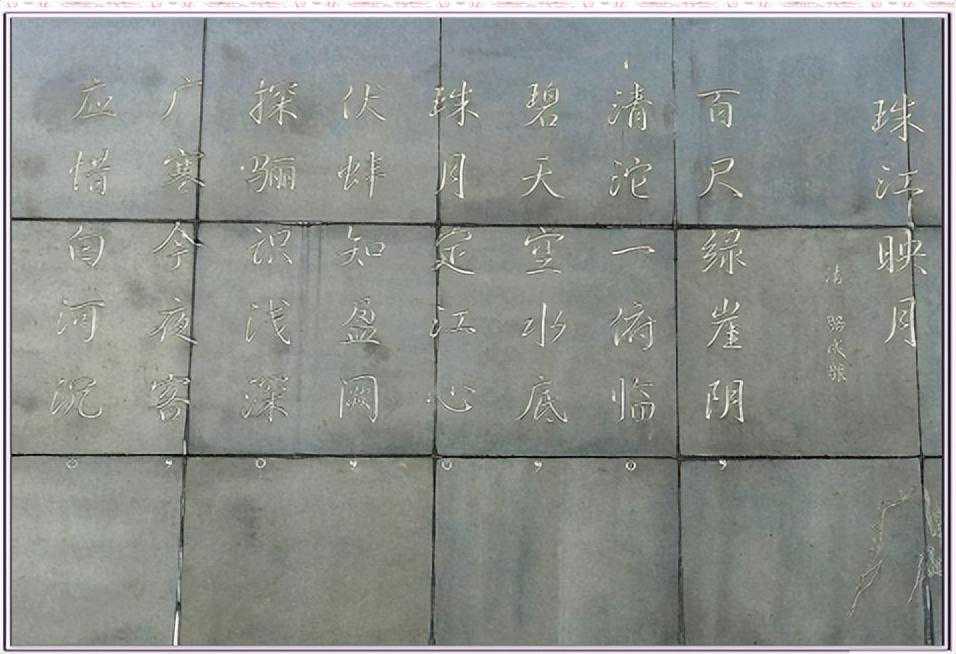 珠江映月
清
百尺绿崖阴，
清沱一俯临。
碧天空水底，
珠月定江心。
伏蚌知盈阙，
探骊识浅深。
广寒今夜客，
应惜白河沉。